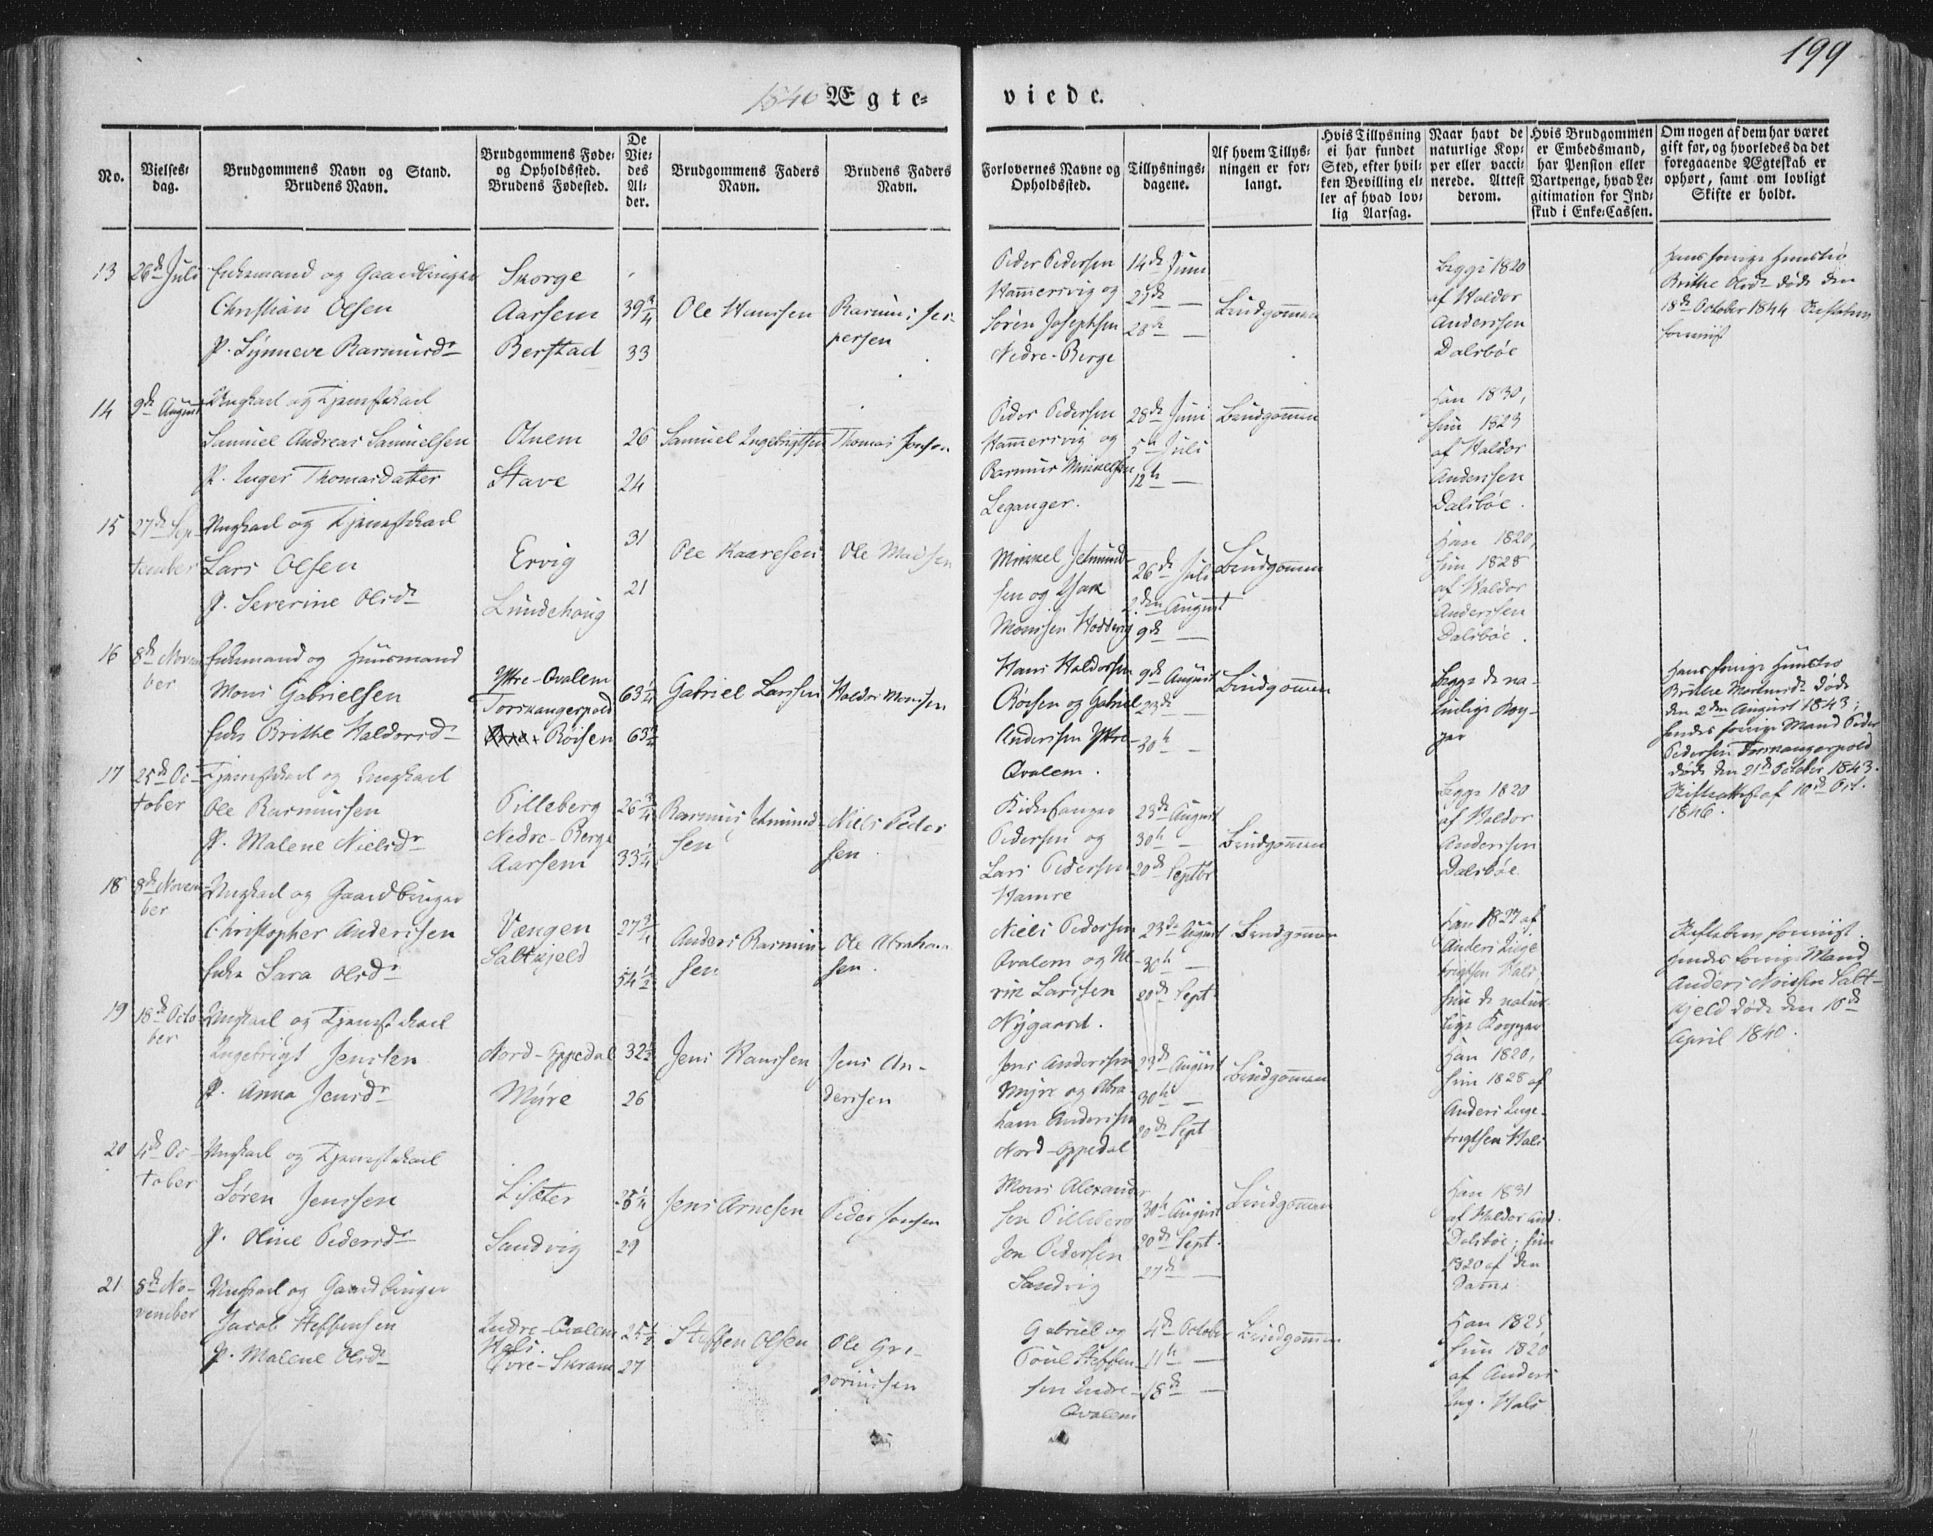 199
1846 Ægte= viede.
No.
Vielses=
dag.
Brudgommens Navn og Stand.
Brudens Navn.
Brudgommens Føde=
og Opholdssted.
Brudens Fødested.
De
Vie=
des
Al=
der.
Brudgommens Faders
Navn.
Brudens Faders
Navn.
Forlovernes Navne og
Opholdssted.
Tillysnings=
dagene.
Af hvem Tillys=
ningen er for=
langt.
Hvis Tillysning
ei har fundet
Sted, efter hvil=
ken Bevilling el=
ler af hvad lov=
lig Aarsag.
Naar havt de
naturlige Kop=
per eller vacci=
nerede. Attest
derom.
Hvis Brudgommen
er Embedsmand,
har Pension eller
Vartpenge, hvad Le=
gitimation for Ind=
skud i Enke=Cassen.
Om nogen af dem har været
gift før, og hvorledes da det
foregaaende Ægteskab er
ophørt, samt om lovligt
Skifte er holdt.
13
26de Juli
Enkemand og Gaardbruger
Christian Olsen
P. Synneve Rasmusdr
Skorge
Aarsem
Berstad
39 3/4
33
Ole Hanssen
Rasmus Jes-
persen
Peder Pedersen
Hammersvig og
Søren Josephsen
Nedre-Berge
14de Juni
21de —
28de —
Brudgommen
Begge 1820
af Haldor
Anderssen
Dalsbøe
Hans forrige Hustro
Brithe Olsdr døde den
18de October 1844
14
9de August
Ungkarl og Tjenestekarl
Samuel Andreas Samuelsen
P. Inger Thomasdatter
Otnem
Stave
26
24
Samuel Ingebrigtsen
Thomas
Peder Pedersen
Hammersvig og
Rasmus Mikkelsen
Leganger.
28de Juni
5te Juli
12te —
Brudgommen
Han 1830,
hun 1823
af Haldor
Anderssen
Dalsbøe.
15
27de Sep-
tember
Ungkarl og Tjenestekarl
Lars Olsen
P. Severine Olsdr
Ervig
Lundehoug
31
21
Ole Kaaresen
Ole Madsen
Mikkel Jetmund-
sen og Isak
Monssen
26de Juli
2den August
9de —
Brudgommen
Han 1820,
hun 1828
af Haldor
Anderssen
Dalsbøe.
16
8de Novem
ber
Enkemand og Huusmand
Mons Gabrielsen
Enke Brithe Haldorsd
Yttre-Qvalem
Torvangerpold
Røisen
63 1/4
63 3/4
Gabriel Larssen
Haldor Monssen
Hans Haldorsen
Røisen og Gabriel
Anderssen Yttre-
Qvalem.
9de August
23de —
30te —
Brudgommen
Begge de na-
turlige Kop-
per
Hans forrige Hustro
Brithe døde
den 2den August 1843;
hendes forrige Mand Peder
Pedersen Torvangerpold
døde den 21de October 1843.
Skifteattest af 10de Oct.
1846.
17
25de Oc-
tober
Tjenestekarl og Ungkarl
Ole Rasmussen
P. Malene Nielsdr
Pilleberg
Nedre-Berge
Aarsem
26 3/4
33 1/4
Rasmus Jetmund-
sen
Niels Peder
sen
Pedersen og
Lars Pedersen
Hamre
23de August
30te —
20de Septbr
Brudgommen
Begge 1820
af Haldor
Anderssen
Dalsbøe
18
8de Novem-
ber
Ungkarl og Gaardbruger
Christopher Anderssen
Enke Sara Olsdr
Vængen
Saltkjeld
27 3/4
54 1/2
Anders Rasmus-
sen
Ole Abraham-
sen.
Niels Pedersen
Qvalem og Ul-
rik Larssen
Nygaard.
23de August
30te —
20de Sept.
Brudgommen
Han 1827 af
Anders Inge-
brigtsen Hals,
hun de natur-
lige Kopper
hendes forrige Mand
Anders Salt-
kjeld døde den 16de
April 1840.
19
18de Octo-
ber
Ungkarl og Tjenestekarl
Ingebrigt Jenssen
P. Anna Jensdr
Nord-Oppedal
Myre
32
26
Jens Hanssen
Jens An-
derssen
Jens Anderssen
Myre og Abra-
ham Anderssen
Nord-Oppedal
23de August
30te —
20de Sept
Brudgommen
Han 1820,
hun 1828 af
Anders Inge-
brigtsen Hals
20
4de Oc-
tober
Ungkarl og Tjenestekarl
Søren Jenssen
P. Oline Pedersdr
Lister
Sandvig
29
Jens Arnesen
Peder
Mons Alexander
sen Pilleberg
Jon Pedersen
Sandvig
30te August
20de Sept.
27de —
Brudgommen
Han 1831
af Haldor And.
Dalsbøe; hun
1820 af den
Samme
21
8de No-
vember
Ungkarl og Gaardbruger
Jacob Steffensen
P. Malene Olsdr
Indre-Qvalem
Hals.
Øvre-Skram
25 1/2
27
Steffen Olsen
Ole Gre-
goriussen
Gabriel og
Poul Steffen-
sen Indre-
Qvalem
4de October
11te —
18de —
Brudgommen
Han 1825,
hun 1820
af Anders
Ing. Hals